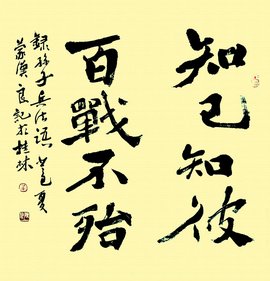 知己知彼
百戰不殆
錄孫子兵法語 夏
良 於桂林